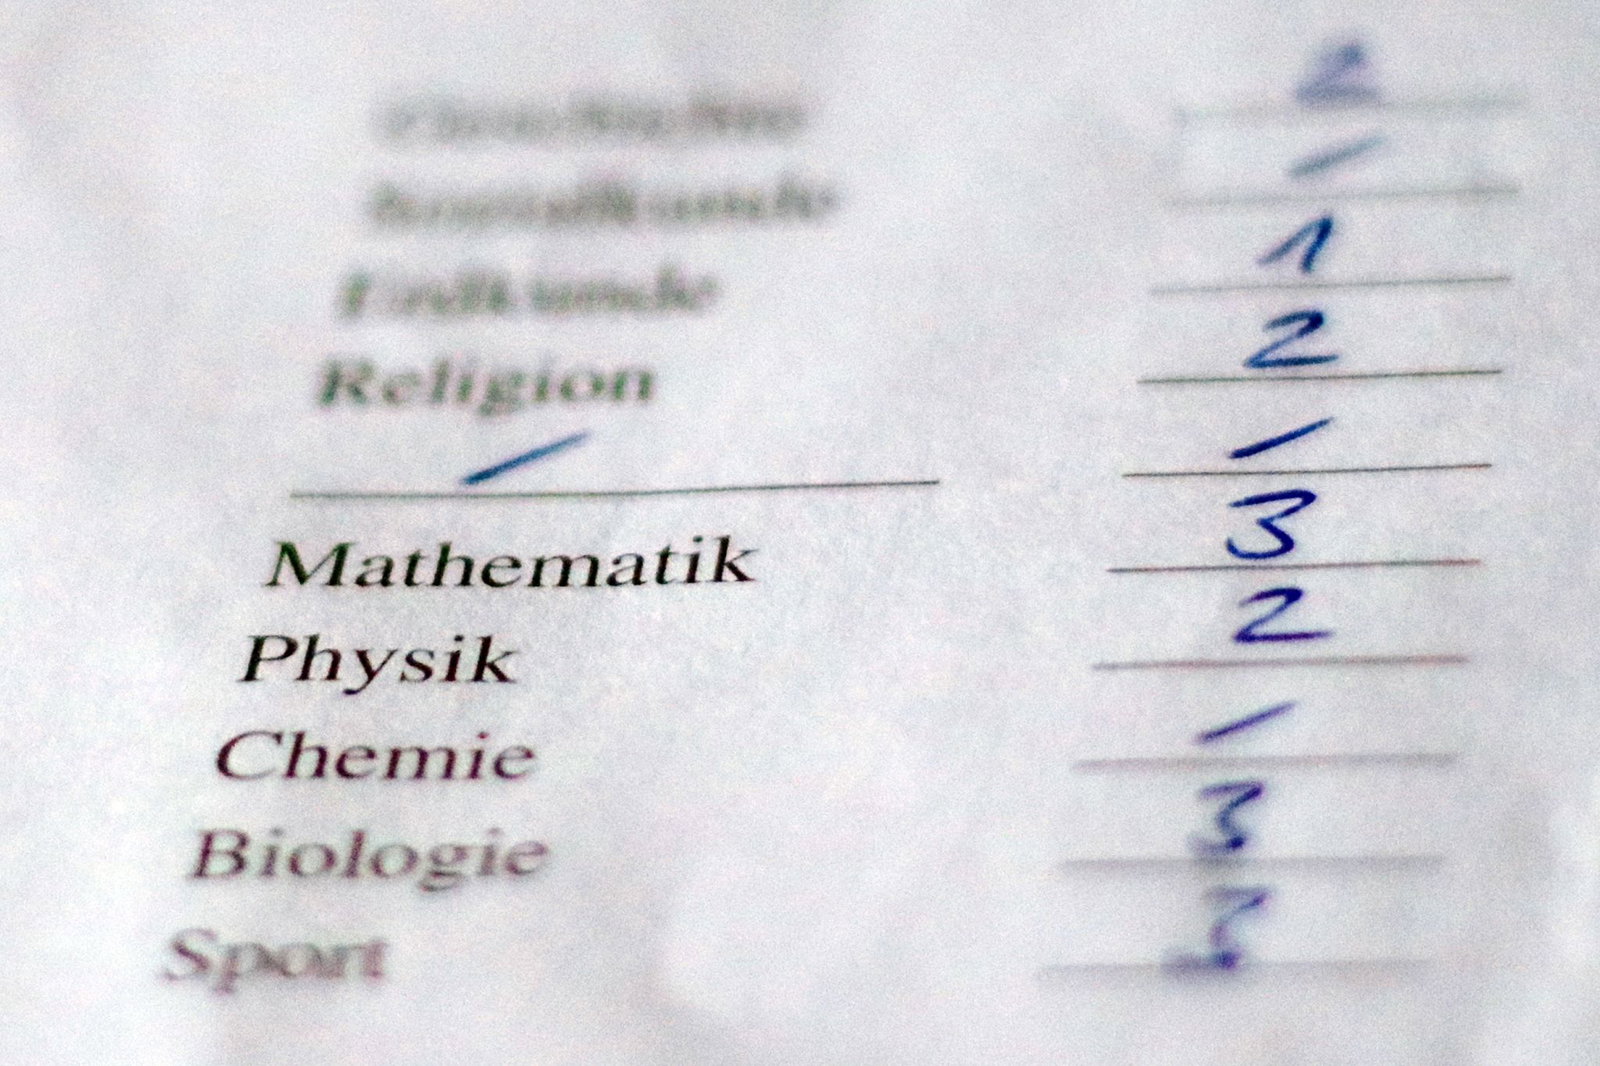 2
/
Erdkunde 1
Religion 2
/ /
Mathematik 3
Physik 2
Chemie /
Biologie 3
Sport 3